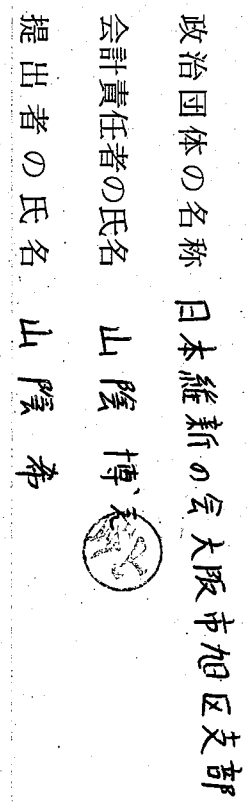 政治団体の名称 日本維新の会大阪市旭区支部
会計責任者の氏名 山陰 博
提出者の氏名 山陰 希